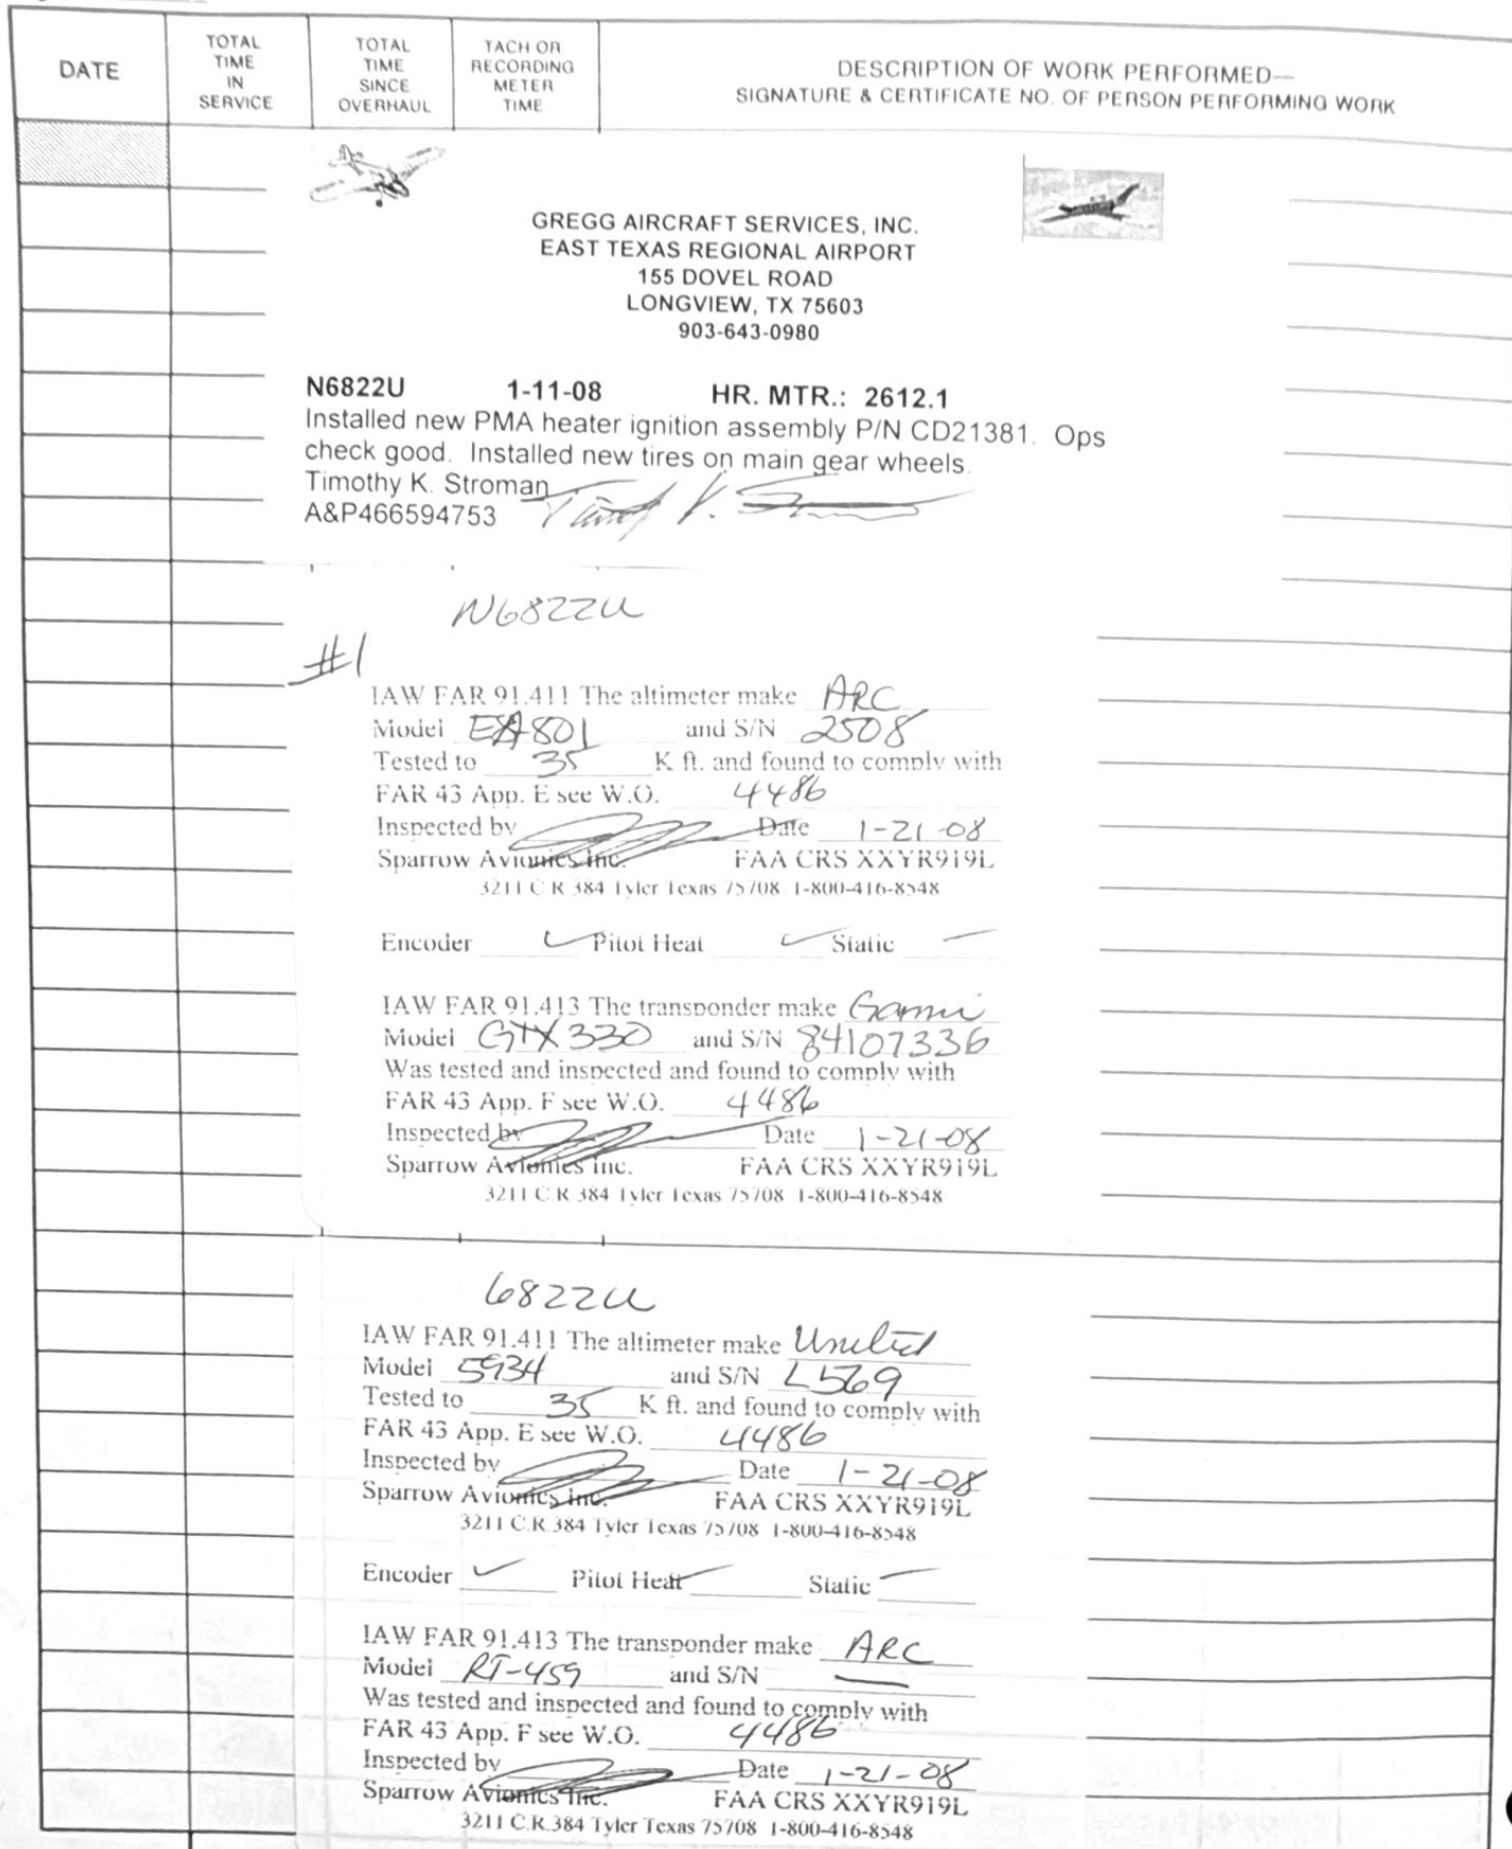 DATE
TOTAL TIME IN SERVICE
TOTAL TIME SINCE OVERHAUL
TACH OR RECORDING METER TIME
DESCRIPTION OF WORK PERFORMED—
SIGNATURE & CERTIFICATE NO. OF PERSON PERFORMING WORK
GREGG AIRCRAFT SERVICES, INC.
EAST TEXAS REGIONAL AIRPORT
155 DOVEL ROAD
LONGVIEW, TX 75603
903-643-0980
N6822U 1-11-08 HR. MTR.: 2612.1
Installed new PMA heater ignition assembly P/N CD21381. Ops
check good. Installed new tires on main gear wheels.
Timothy K. Stroman
A&P466594753
N6822U
#1
IAW FAR 91.411 The altimeter make ARC
Model EA801 and S/N 2508
Tested to 35 K ft. and found to comply with
FAR 43 App. E see W.O. 4486
Inspected by Date 1-21-08
Sparrow Avionics Inc. FAA CRS XXYR919L
3211 C R 384 Tyler Texas 75708 1-800-416-8548
Encoder ✓ Pitot Heat ✓ Static —
IAW FAR 91.413 The transponder make Garmin
Model GTX 330 and S/N 84107336
Was tested and inspected and found to comply with
FAR 43 App. F see W.O. 4486
Inspected by Date 1-21-08
Sparrow Avionics Inc. FAA CRS XXYR919L
3211 C R 384 Tyler Texas 75708 1-800-416-8548
6822U
IAW FAR 91.411 The altimeter make United
Model 5934 and S/N L569
Tested to 35 K ft. and found to comply with
FAR 43 App. E see W.O. 4486
Inspected by Date 1-21-08
Sparrow Avionics Inc. FAA CRS XXYR919L
3211 C.R.384 Tyler Texas 75708 1-800-416-8548
Encoder ✓ Pitot Heat Static —
IAW FAR 91.413 The transponder make ARC
Model RT-459 and S/N —
Was tested and inspected and found to comply with
FAR 43 App. F see W.O. 4486
Inspected by Date 1-21-08
Sparrow Avionics Inc. FAA CRS XXYR919L
3211 C.R.384 Tyler Texas 75708 1-800-416-8548